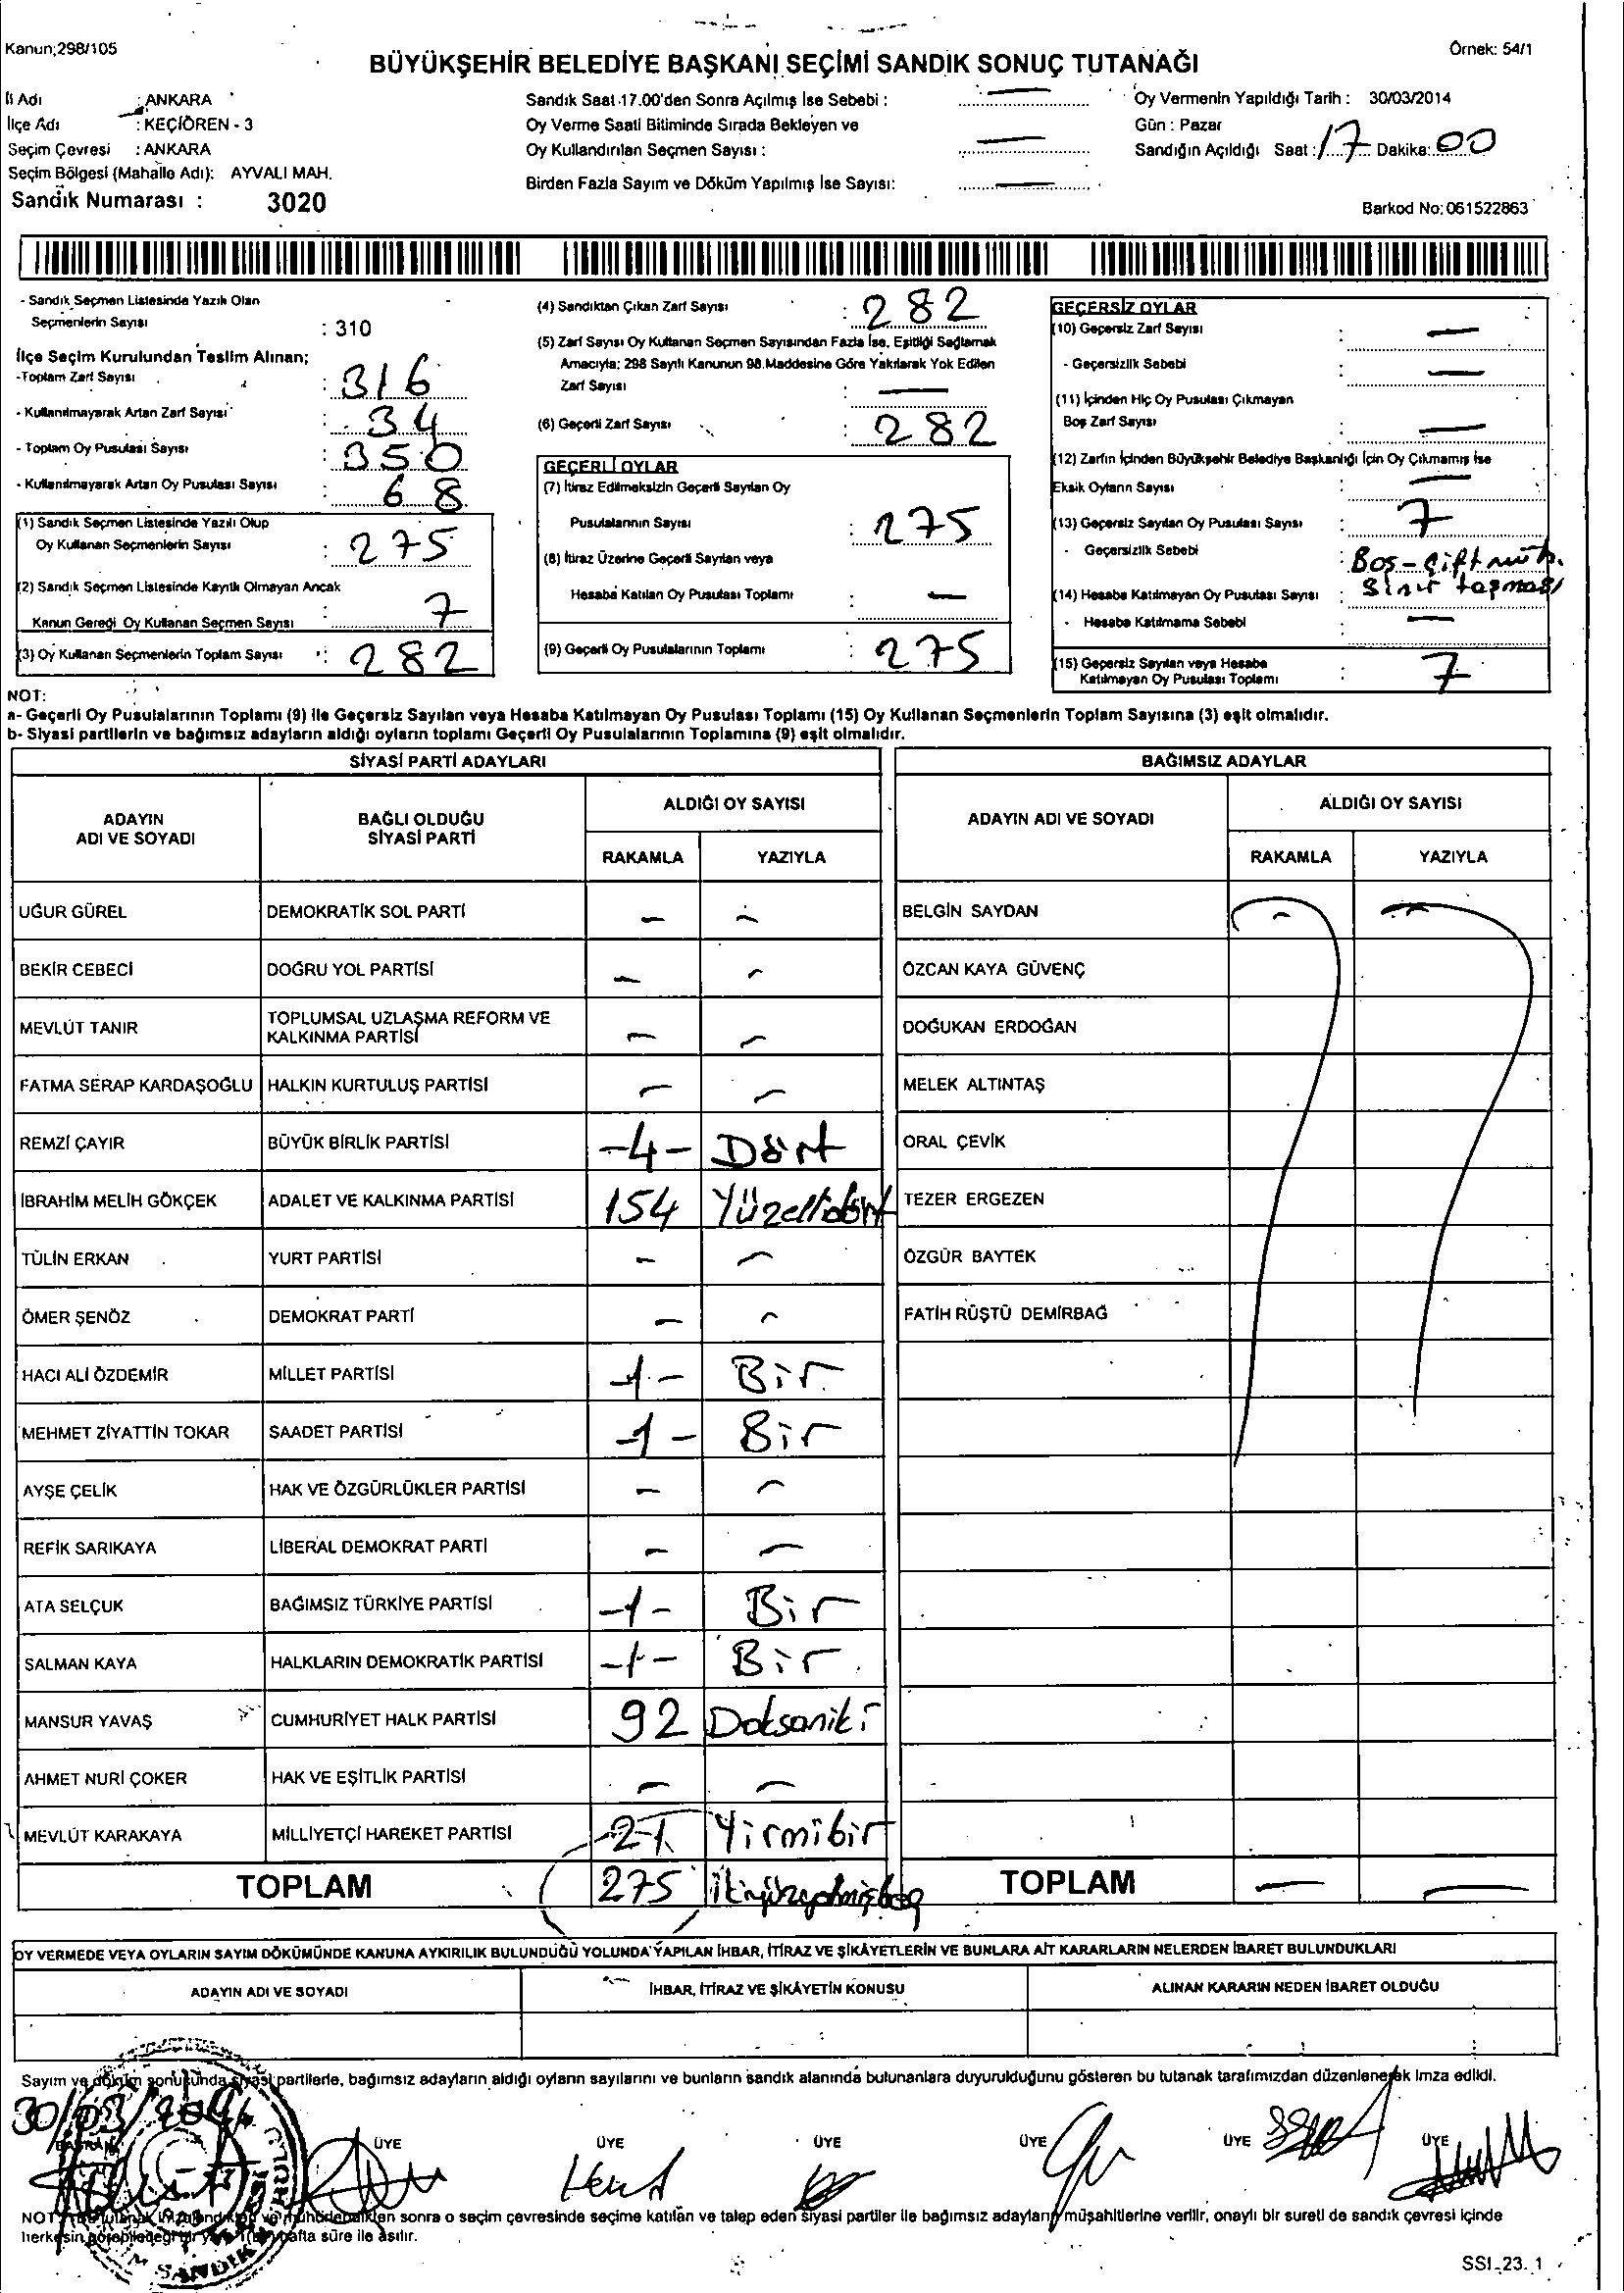 Kanun;298/105
Örnek: 54/1
BÜYÜKŞEHİR BELEDİYE BAŞKANI SEÇİMİ SANDIK SONUÇ TUTANAĞI
İli Adı : ANKARA
İlçe Adı : KEÇİÖREN - 3
Seçim Çevresi : ANKARA
Seçim Bölgesi (Mahalle Adı): AYVALI MAH.
Sandık Numarası : 3020
Sandık Saat 17.00'den Sonra Açılmış İse Sebebi : —
Oy Verme Saati Bitiminde Sırada Bekleyen ve
Oy Kullandırılan Seçmen Sayısı : —
Birden Fazla Sayım ve Döküm Yapılmış İse Sayısı: —
Oy Vermenin Yapıldığı Tarih : 30/03/2014
Gün : Pazar
Sandığın Açıldığı Saat : 17 Dakika: 00
Barkod No: 061522863
- Sandık Seçmen Listesinde Yazılı Olan
Seçmenlerin Sayısı : 310
İlçe Seçim Kurulundan Teslim Alınan;
-Toplam Zarf Sayısı : 316
- Kullanılmayarak Artan Zarf Sayısı : 34
- Toplam Oy Pusulası Sayısı : 350
- Kullanılmayarak Artan Oy Pusulası Sayısı : 68
(1) Sandık Seçmen Listesinde Yazılı Olup
Oy Kullanan Seçmenlerin Sayısı : 275
(2) Sandık Seçmen Listesinde Kayıtlı Olmayan Ancak
Kanun Gereği Oy Kullanan Seçmen Sayısı : 7
(3) Oy Kullanan Seçmenlerin Toplam Sayısı : 282
(4) Sandıktan Çıkan Zarf Sayısı : 282
(5) Zarf Sayısı Oy Kullanan Seçmen Sayısından Fazla İse, Eşitliği Sağlamak
Amacıyla; 298 Sayılı Kanunun 98.Maddesine Göre Yakılarak Yok Edilen
Zarf Sayısı : —
(6) Geçerli Zarf Sayısı : 282
GEÇERLİ OYLAR
(7) İtiraz Edilmeksizin Geçerli Sayılan Oy
Pusulalarının Sayısı : 275
(8) İtiraz Üzerine Geçerli Sayılan veya
Hesaba Katılan Oy Pusulası Toplamı : —
(9) Geçerli Oy Pusulalarının Toplamı : 275
GEÇERSİZ OYLAR
(10) Geçersiz Zarf Sayısı : —
- Geçersizlik Sebebi : —
(11) İçinden Hiç Oy Pusulası Çıkmayan
Boş Zarf Sayısı : —
(12) Zarfın İçinden Büyükşehir Belediye Başkanlığı İçin Oy Çıkmamış İse
Eksik Oyların Sayısı : —
(13) Geçersiz Sayılan Oy Pusulası Sayısı : 7
- Geçersizlik Sebebi : Boş - çift müh.
sınır taşması
(14) Hesaba Katılmayan Oy Pusulası Sayısı :
- Hesaba Katılmama Sebebi : —
(15) Geçersiz Sayılan veya Hesaba
Katılmayan Oy Pusulası Toplamı : 7
NOT:
a- Geçerli Oy Pusulalarının Toplamı (9) ile Geçersiz Sayılan veya Hesaba Katılmayan Oy Pusulası Toplamı (15) Oy Kullanan Seçmenlerin Toplam Sayısına (3) eşit olmalıdır.
b- Siyasi partilerin ve bağımsız adayların aldığı oyların toplamı Geçerli Oy Pusulalarının Toplamına (9) eşit olmalıdır.
SİYASİ PARTİ ADAYLARI
BAĞIMSIZ ADAYLAR
ADAYIN ADI VE SOYADI
BAĞLI OLDUĞU SİYASİ PARTİ
ALDIĞI OY SAYISI
RAKAMLA YAZIYLA
ADAYIN ADI VE SOYADI
ALDIĞI OY SAYISI
RAKAMLA YAZIYLA
UĞUR GÜREL DEMOKRATİK SOL PARTİ — — BELGİN SAYDAN — —
BEKİR CEBECİ DOĞRU YOL PARTİSİ — — ÖZCAN KAYA GÜVENÇ
MEVLÜT TANIR TOPLUMSAL UZLAŞMA REFORM VE KALKINMA PARTİSİ — — DOĞUKAN ERDOĞAN
FATMA SERAP KARDAŞOĞLU HALKIN KURTULUŞ PARTİSİ — — MELEK ALTINTAŞ
REMZİ ÇAYIR BÜYÜK BİRLİK PARTİSİ -4- Dört ORAL ÇEVİK
İBRAHİM MELİH GÖKÇEK ADALET VE KALKINMA PARTİSİ 154 Yüzellidört TEZER ERGEZEN
TÜLİN ERKAN YURT PARTİSİ — — ÖZGÜR BAYTEK
ÖMER ŞENÖZ DEMOKRAT PARTİ — — FATİH RÜŞTÜ DEMİRBAĞ
HACI ALİ ÖZDEMİR MİLLET PARTİSİ -1- Bir
MEHMET ZİYATTİN TOKAR SAADET PARTİSİ -1- Bir
AYŞE ÇELİK HAK VE ÖZGÜRLÜKLER PARTİSİ — —
REFİK SARIKAYA LİBERAL DEMOKRAT PARTİ — —
ATA SELÇUK BAĞIMSIZ TÜRKİYE PARTİSİ -1- Bir
SALMAN KAYA HALKLARIN DEMOKRATİK PARTİSİ -1- Bir
MANSUR YAVAŞ CUMHURİYET HALK PARTİSİ 92 Doksaniki
AHMET NURİ ÇOKER HAK VE EŞİTLİK PARTİSİ — —
MEVLÜT KARAKAYA MİLLİYETÇİ HAREKET PARTİSİ -21 Yirmibir
TOPLAM 275 ikiyüzyetmişbeş TOPLAM — —
OY VERMEDE VEYA OYLARIN SAYIM DÖKÜMÜNDE KANUNA AYKIRILIK BULUNDUĞU YOLUNDA YAPILAN İHBAR, İTİRAZ VE ŞİKÂYETLERİN VE BUNLARA AİT KARARLARIN NELERDEN İBARET BULUNDUKLARI
ADAYIN ADI VE SOYADI İHBAR, İTİRAZ VE ŞİKÂYETİN KONUSU ALINAN KARARIN NEDEN İBARET OLDUĞU
Sayım ve döküm sonucunda siyasi partilerle, bağımsız adayların aldığı oyların sayılarını ve bunların sandık alanında bulunanlara duyurulduğunu gösteren bu tutanak tarafımızdan düzenlenerek imza edildi.
30/03/2014
BAŞKAN ÜYE ÜYE ÜYE ÜYE ÜYE ÜYE
NOT: sonra o seçim çevresinde seçime katılan ve talep eden siyasi partiler ile bağımsız adayların müşahitlerine verilir, onaylı bir sureti de sandık çevresi içinde
herkesin görebileceği bir hafta süre ile asılır.
SANDIK
SSI_23. 1